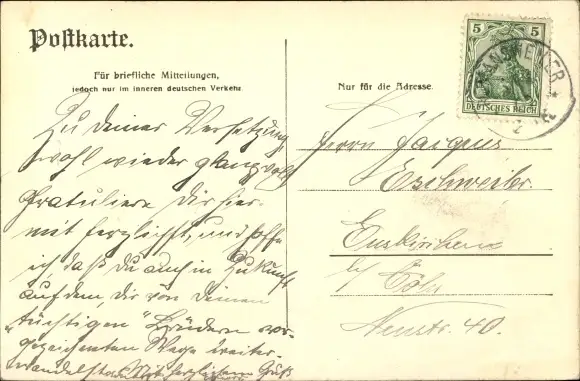 Postkarte.
Für briefliche Mitteilungen,
jedoch nur im inneren deutschen Verkehr
Nur für die Adresse.
5 5
DEUTSCHES REICH
Zu deiner Versetzung
wohl wieder glanzvoll
Gratuliere Dir hier-
mit herzlichst, und hoffe
ich, daß Du auch in Zukunft
auf dem, dir von Deinen
„tüchtigen" Brüdern vor-
gezeichneten Wege weiter-
wandelst. Mit herzlichem Gruß
Herrn Jacques
Eschweiler.
Euskirchen
b/ Cöln
Neustr. 40.